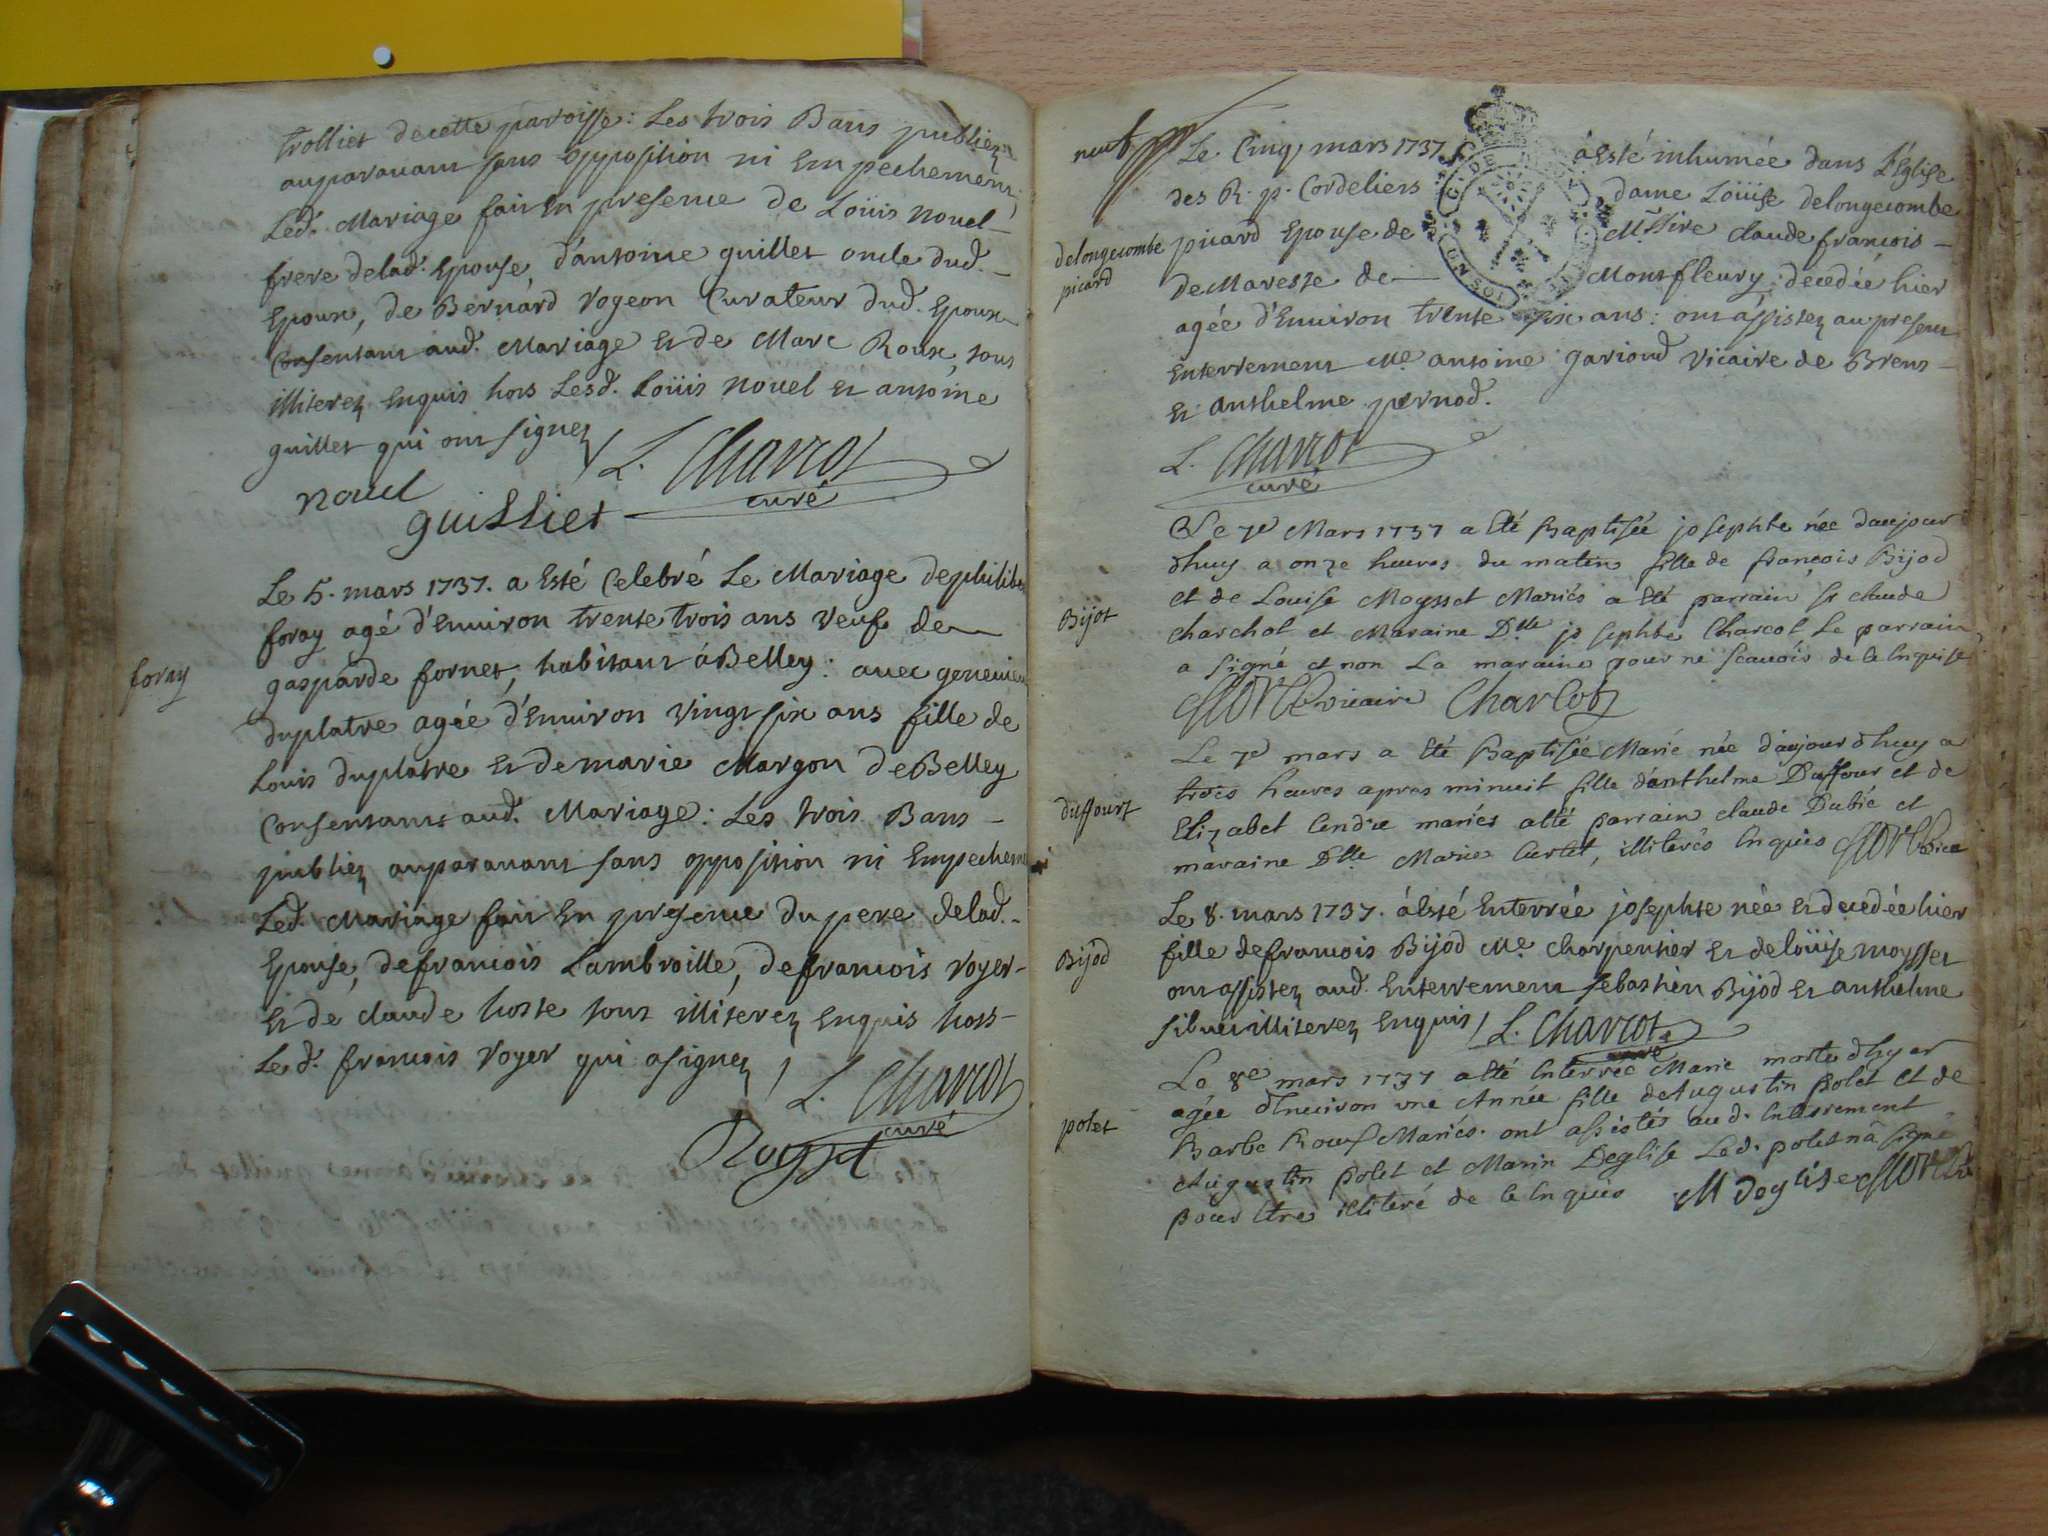 trolliet decette paroisse: Les trois Bans publiez
auparavant sans opposition ni Empechement
Led. Mariage fait En presence de Loüis novel
frere delad. Epouse, d'antoine guillet oncle dud.
Epoux, de Bernard Vogeon Curateur dud. Epoux
Consentant aud. Mariage et de Marc Roux, tous
illiterez Enquis hors Lesd. Loüis novel et antoine
guillet qui ont signez
L. Charcot
curé
novel
guilliet
Le 5. mars 1737. a Esté Celebré Le Mariage dephilibe
foray
foray agé d'Environ trente trois ans veuf de
gasparde fornet, habitant à Belley: avec genevieve
duplatre agée d'Environ vingt six ans fille de
Louis duplatre et demarie Margon de Belley
Consentants aud. Mariage: Les trois Bans
publiez auparavant sans opposition ni Empechem
Led. Mariage fait En presence du pere delad.
Epouse, defrancois Lambroille, defrancois Voyer
et de claude hoste tous illiterez Enquis hors
Led. francois Voyer qui asignez
L. Charcot
curé
neuf
Le Cinq mars 1737 à Esté inhumée dans L'Eglise
des R. p. Cordeliers dame Loüise delongecombe
delongecombe
picard
picard Epouse de M.re claude francois
deMareste de Montfleury: decedée hier
agée d'Environ trente six ans: ont assistez au present
Enterrement Me. antoine gariond vicaire de Brens
et anthelme pernod.
L. Charcot
curé
Le 7e Mars 1737 a Eté Baptisée josephte née daujour
dhuy a onze heures du matin fille de françois Bijod
Bijot
et de Louise Moysset Mariés a Eté parrain sr claude
charchot et Maraine Dlle josephte Charcot Le parrain
a signé et non La maraine pour ne scavoir de ce Enquise
vicaire Charcot
Le 7e mars a Eté Baptisée Marie née d'aujourdhuy a
trois heures apres minuit fille d'anthelme Duffour et de
duffourt
Elizabet Cendre mariés a Eté parrain claude Dubie et
maraine Dlle Marie Curtet, illiterés Enquis
Le 8. mars 1737. à Esté Enterrée josephte née et decedée hier
Bijod
fille defrancois Bijod Me. charpentier et de loüise moysset
ont assistez aud. Enterrement sebastien Bijod et anthelme
illiterez Enquis L. Charcot
curé
Le 8e mars 1737 a Eté Enterrée Marie morte dhyer
agée dEnviron une Année fille deAugustin polet et de
polet
Barbe Rouf Mariés. ont assistés aud. Enterrement
Augustin polet et Marin Deglise Led. polet n'a signé
pour Etre illiteré de ce Enquis M Deglise